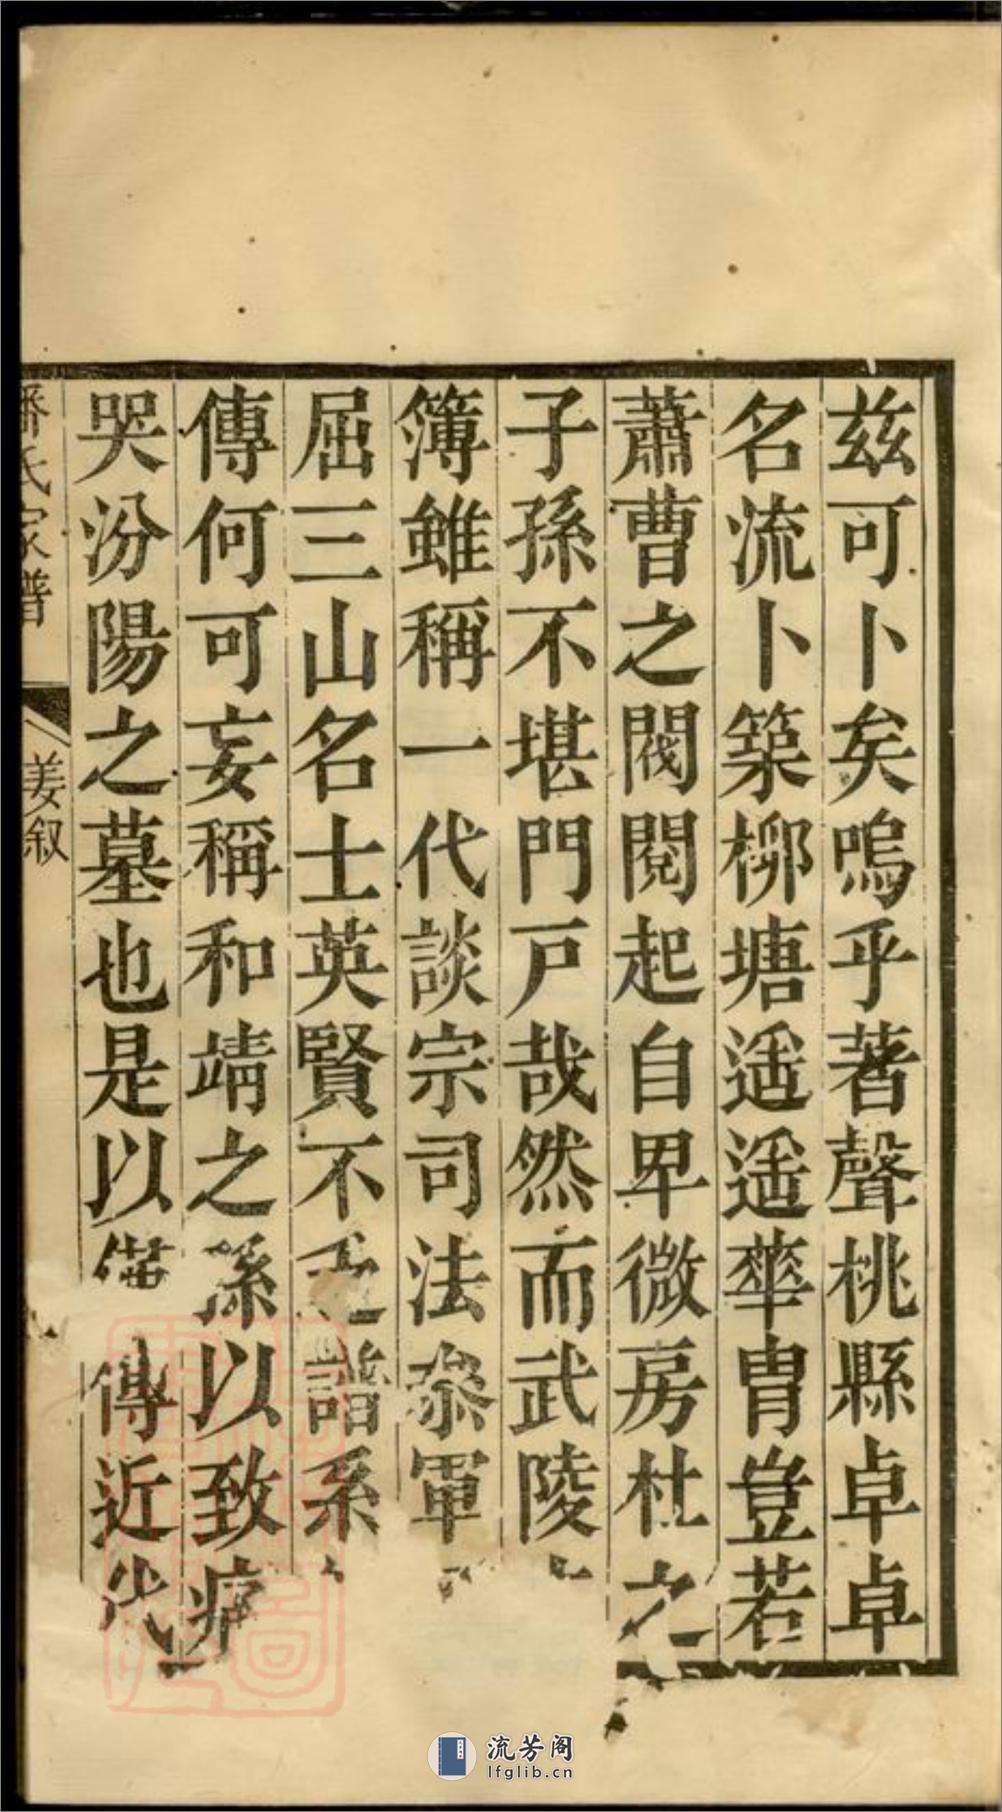 茲可卜矣嗚乎著聲桃縣卓卓
名流卜築柳塘遥遥華胄豈若
蕭曹之閥閱起自卑微房杜之
子孫不堪門戸哉然而武陵
簿雖稱一代談宗司法叅軍
屈三山名士英賢不 譜系
傳何可妄稱和靖之孫以致
哭汾陽之墓也是以 傳近代
潘氏家譜
姜叙
流芳阁
lfglib.cn